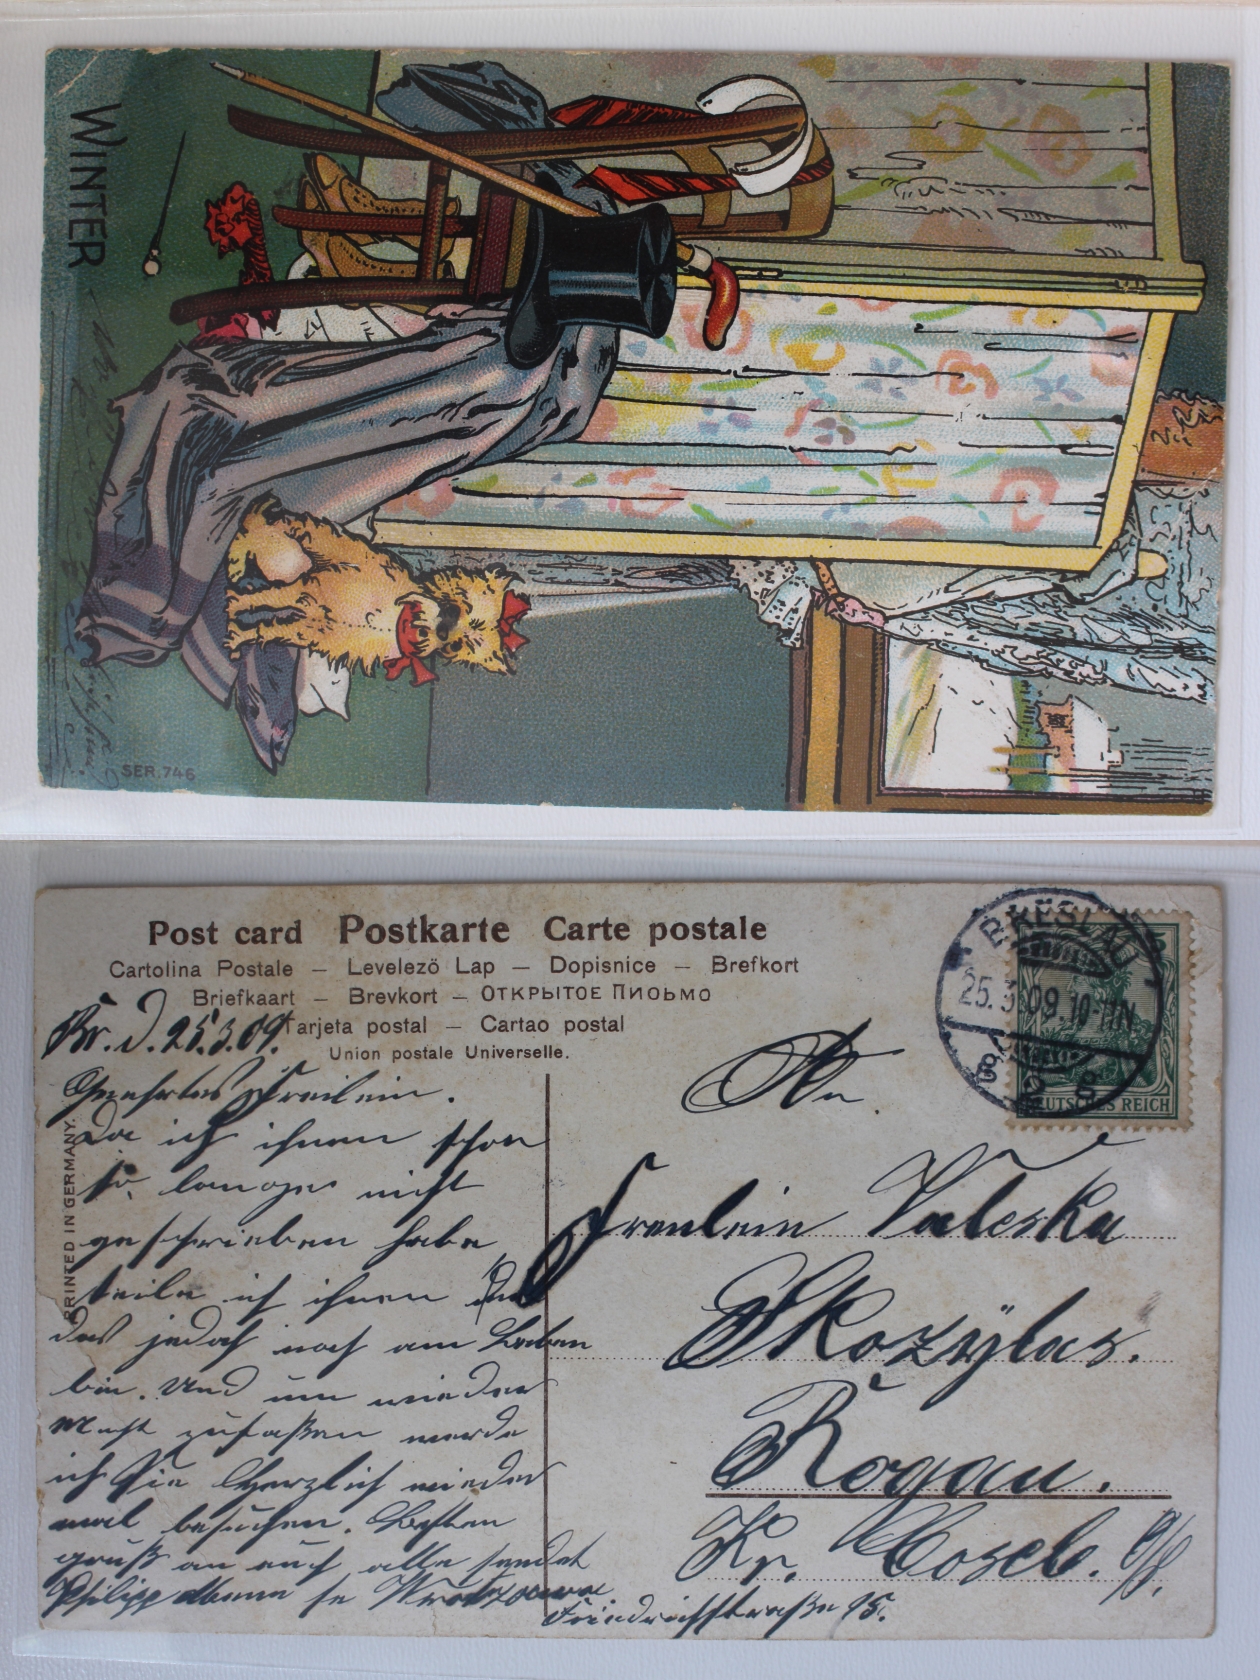 WINTER
SER. 746
Post card Postkarte Carte postale
Cartolina Postale – Levelezö Lap – Dopisnice – Brefkort
Briefkaart – Brevkort – ОТКРЫТОЕ ПИОЬМО
Tarjeta postal – Cartao postal
Union postale Universelle.
PRINTED IN GERMANY.
BRESLAU
25.3.09.10-11N.
8
DEUTSCHES REICH
Br. d. 25.3.09.
Geehrtes Freilein.
Da ich ihnen schon
so langes nicht
geschrieben habe
teile ich ihnen
das jedoch noch am Leben
bin. Und um wieder
zufaßen werde
ich Sie Herzlich wieder
mal besuchen. Besten
gruß an euch alle sendet
Philipp
Friedrichstraße 95.
An
Freulein Valeska
Skozÿlas.
Rogau.
Kr. Cosel. O/S.